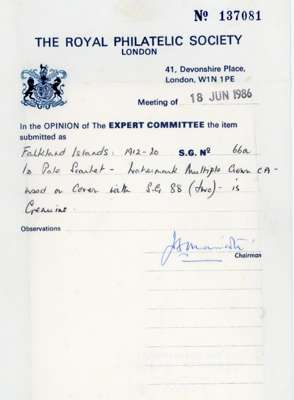 Nº 137081
THE ROYAL PHILATELIC SOCIETY
LONDON
41, Devonshire Place,
London, W1N 1PE
Meeting of 18 JUN 1986
In the OPINION of The EXPERT COMMITTEE the item
submitted as
Falkland Islands: 1912-20 S.G. Nº 66a
1d Pale Scarlet - watermark Multiple Crown CA -
used on Cover with S.G 88 (two) - is
Genuine.
Observations
Chairman